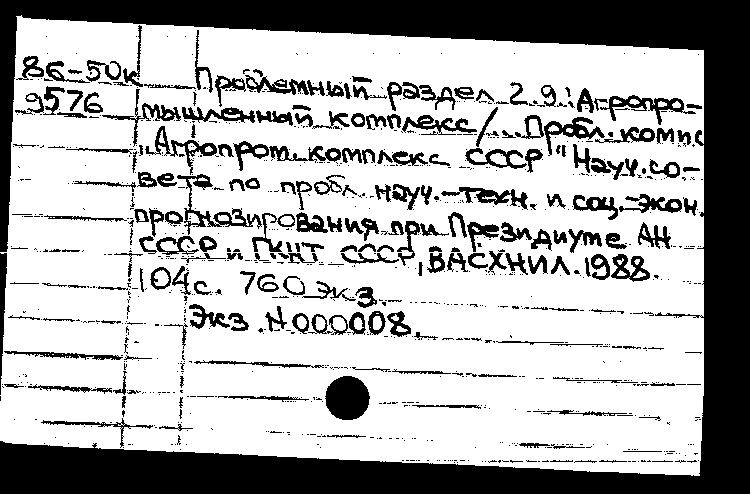 86-50к Проблемный раздел 2.9: Агропро-
9576 мышленный комплекс/... Пробл. комис
„Агропром. комплекс СССР" Науч. со-
вета по пробл. науч.-техн. и соц.-экон.
прогнозирования при Президиуме АН
СССР и ГКНТ СССР, ВАСХНИЛ. 1988.
104с. 760 экз.
Экз. N000008.